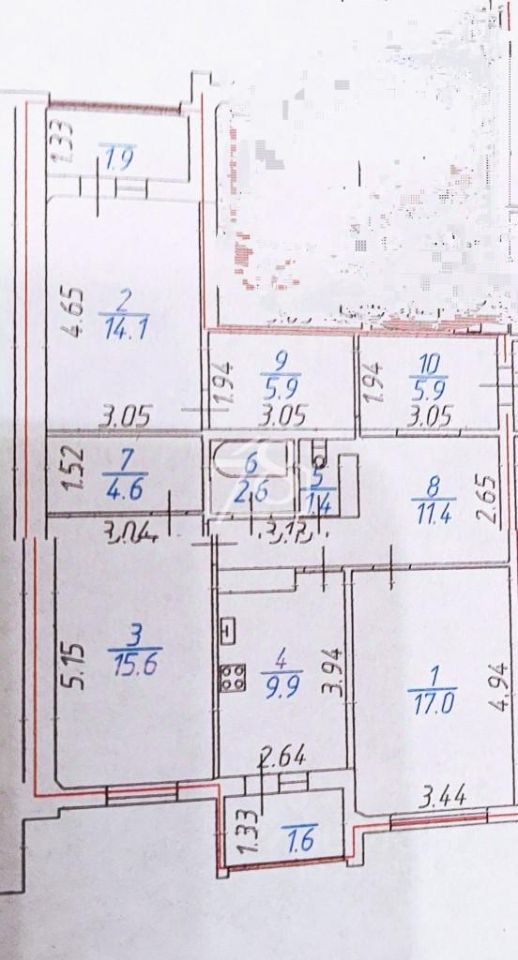 1.33
1.9
4.65
2
14.1
3.05
9
5.9
1.94
3.05
10
5.9
1.94
3.05
1.52
7
4.6
3.04
6
2.6
5
1.4
3.13
8
11.4
2.65
3
15.6
5.15
4
9.9
3.94
2.64
1
17.0
4.94
3.44
1.33
1.6